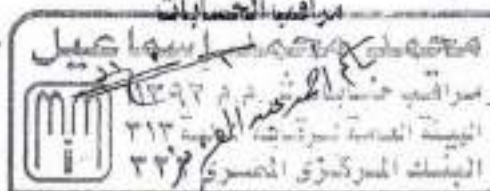 مراقب الحسابات
محمد محمد إسماعيل
مراقب حسابات س م م ١٣٩٢
الهيئة العامة للرقابة المالية ٣١٣
البنك المركزى المصرى ٣٣٢